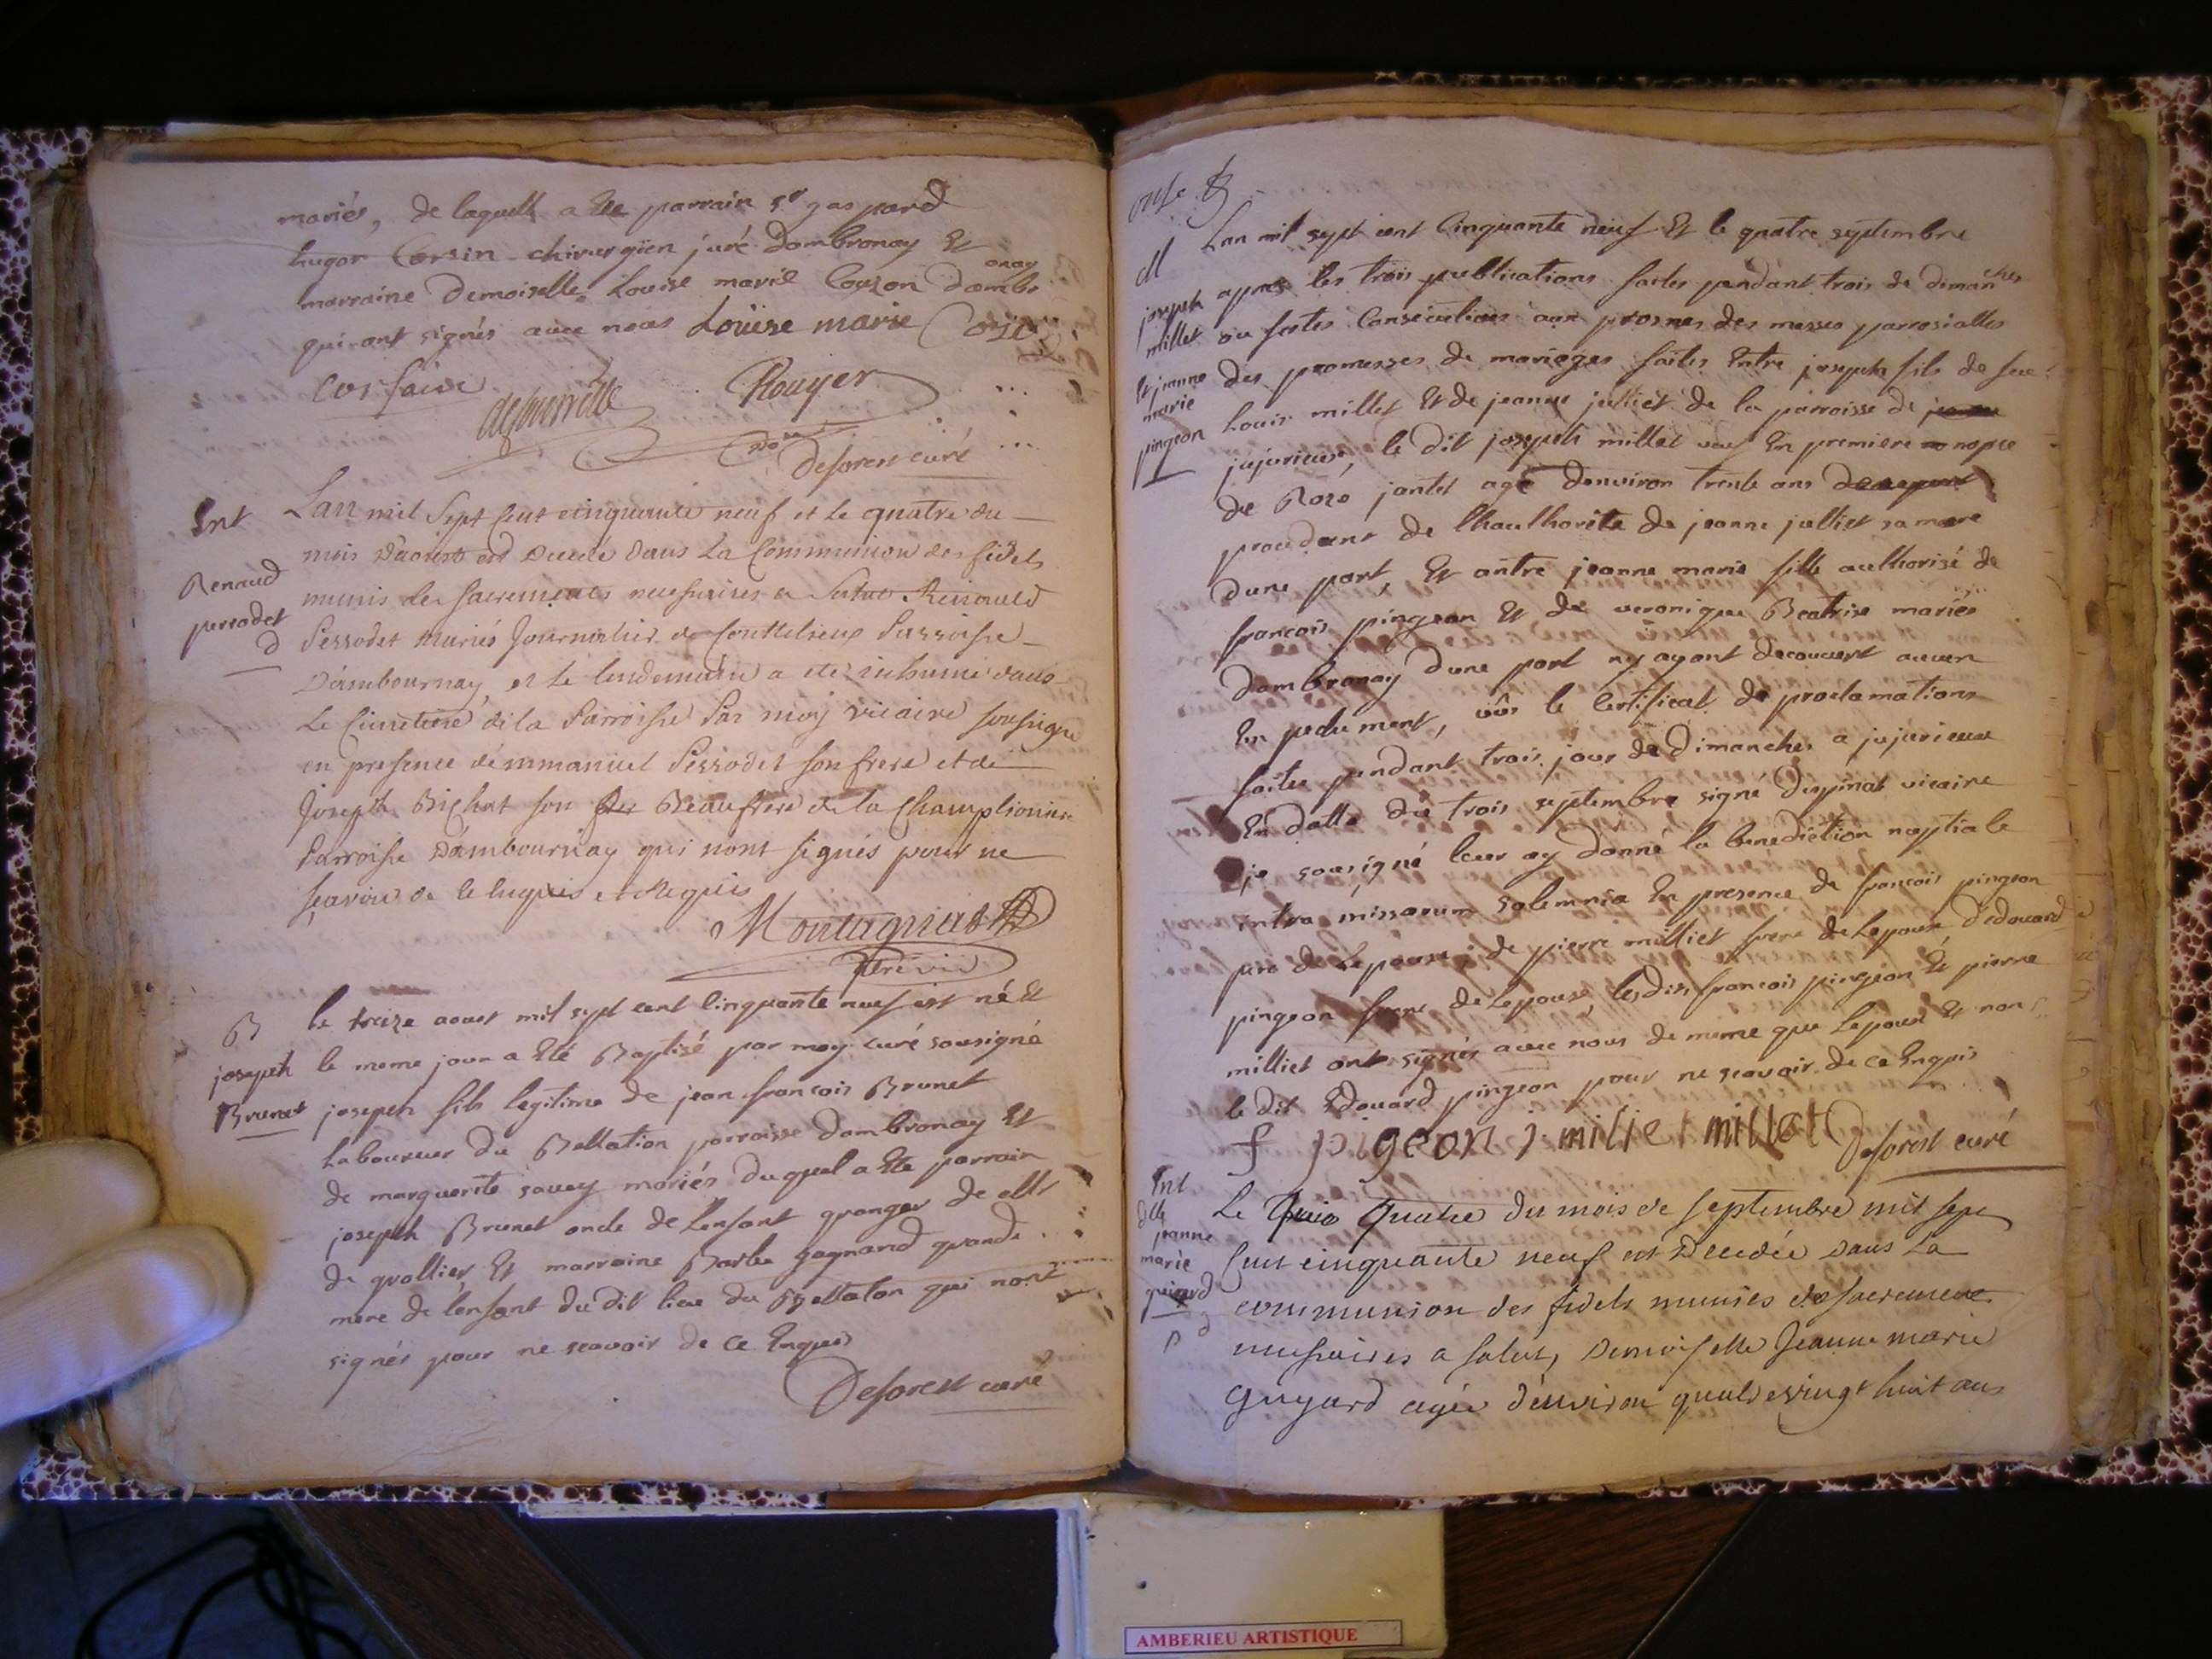 mariés, de laquelle a Ete parrain sr gaspard
hugon Corsin chirurgien juré dambronay Et
marraine Demoiselle Louise marie Couzon dambr
onay
qui ont signés avec nous Louise marie
Rouyer
Deforest curé
Ent
Renaud
perrodet
d
Lan mil Sept Cent cinquante neuf et le quatre du
mois Daoust est Decedé dans la Communion des fidels
munis des sacrements necessaires a Salut Renauld
Perrodet mariés Journalier de Couttelieux Parroisse
Dambournay, et le lendemain a eté inhumé dans
Le Cimetiere de la Parroisse Par moy vicaire soussigné
en presence demmanuel Perrodet son frere et de
Joseph Bichat son Beaufrere de la Champlioniere
Parroisse Dambournay qui nont signés pour ne
sçavoir de ce enquis et Requis
Montagniat
B
joseph
Brunet
le treize aoust mil sept cent Cinquante neuf est né Et
le meme jour a Eté Baptisé par moy curé sousigné
joseph fils legitime de jean francois Brunet
laboureur du Bellation parroisse dambronay Et
de marguerite savey mariés duquel a Ete parrain
joseph Brunet oncle de Lenfant granger de elle
de grallier Et marraine Barbe gagnard grande
mere de lenfant du dit lieu du Bellaton qui nont
signés pour ne scavoir de ce Enquis
Deforest curé
onze
M
joseph
millet
Et jeanne
marie
pingeon
Lan mil sept cent Cinquante neuf Et le quatre septembre
apres les trois publications faites pendant trois de dimanches
ou festes Consecutives aux prosnes des messes parrosialles
des promesses de mariages faites Entre joseph fils de feu
Louis millet Et de jeanne julliet de la parroisse de
jujurieux, le dit joseph millet veuf En premiere nopce
de Roze jantet agé denviron trente ans
procedant de lhaulthorité de jeanne julliet sa mere
dune part, Et antre jeanne marie fille aulthorisé de
francois pingeon Et de veronique Beatrise mariés
dambronay dune part ny ayant decouvert aucun
Enpechement, vûs le Certificat de proclamations
faites pendant trois jour de Dimanches a jujurieux
En datte du trois septembre signé despinat vicaire
je sousigné leur ay donné la benediction nuptiale
intra missarum solemnia En presence de francois pingeon
pere de Lepouse, de pierre milliet frere de Lepoux, dedouard
pingeon frere de Lepouse, lesdits francois pingeon Et pierre
milliet ont signés avec nous de meme que Lepoux Et non
le dit Edouard pingeon pour ne scavoir de ce Enquis
f pigeon j. miliet millet Deforest curé
Ent
dlle
jeanne
marie
guiard
d
Le quatre du mois de septembre mil sept
Cent cinquante neuf est Decedée dans La
communion des fidels munies des sacrements
necessaires a salut, Demoiselle Jeanne marie
Guyard agée denviron quatrevingt huit ans
AMBERIEU ARTISTIQUE